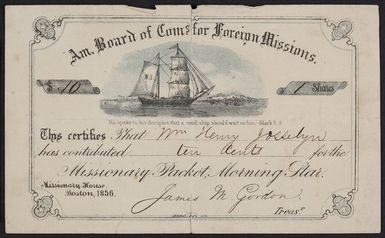 Am. Board of Coms for Foreign Missions.
$ .10
1 Shares
"He spake to his disciples that a small ship should wait on him." Mark 3. 9
This certifies That Wm Henry Josselyn
has contributed ten Cents for the
Missionary Packet, Morning Star.
Missionary House,
Boston, 1856.
James M. Gordon.
Treasr.